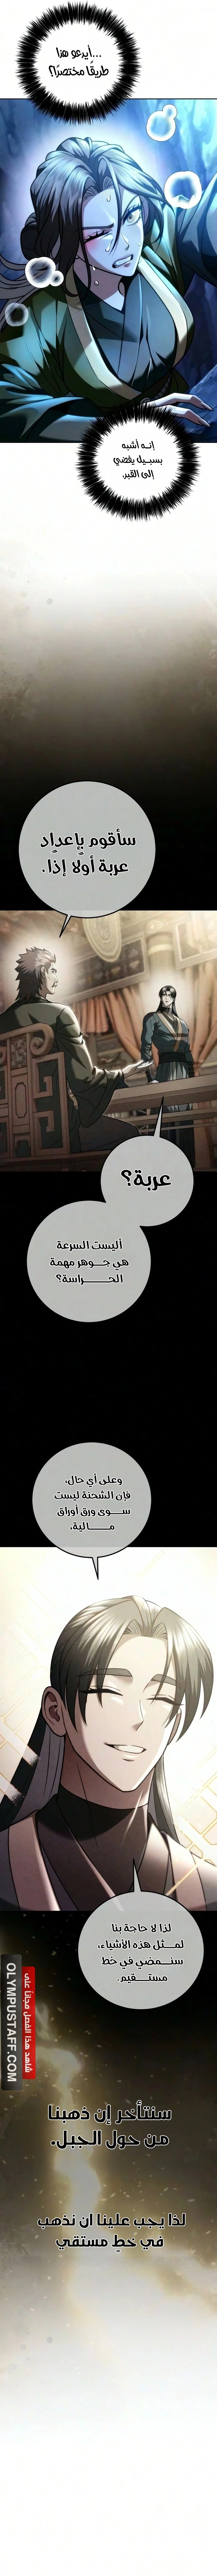 ...أيدعو هذا
طريقًا مختصرًا؟
إنـه أشبه
بسبـيل يفضي
إلى القبر.
سأقوم بإعداد
عربة أولًا إذًا.
عربة؟
أليست السرعة
هي جـوهر مهمة
الحـراسة؟
وعلى أي حال،
فإن الشحنة ليست
سـوى ورق أوراق
مـالية،
لذا لا حاجة بنا
لمـثل هذه الأشياء،
سنـمضي في خط
مستـقيم.
شاهد هذا الفصل مجاناً على
OLYMPUSTAFF.COM
سنتأخر إن ذهبنا
من حول الجبل.
لذا يجب علينا ان نذهب
في خطٍ مستقي